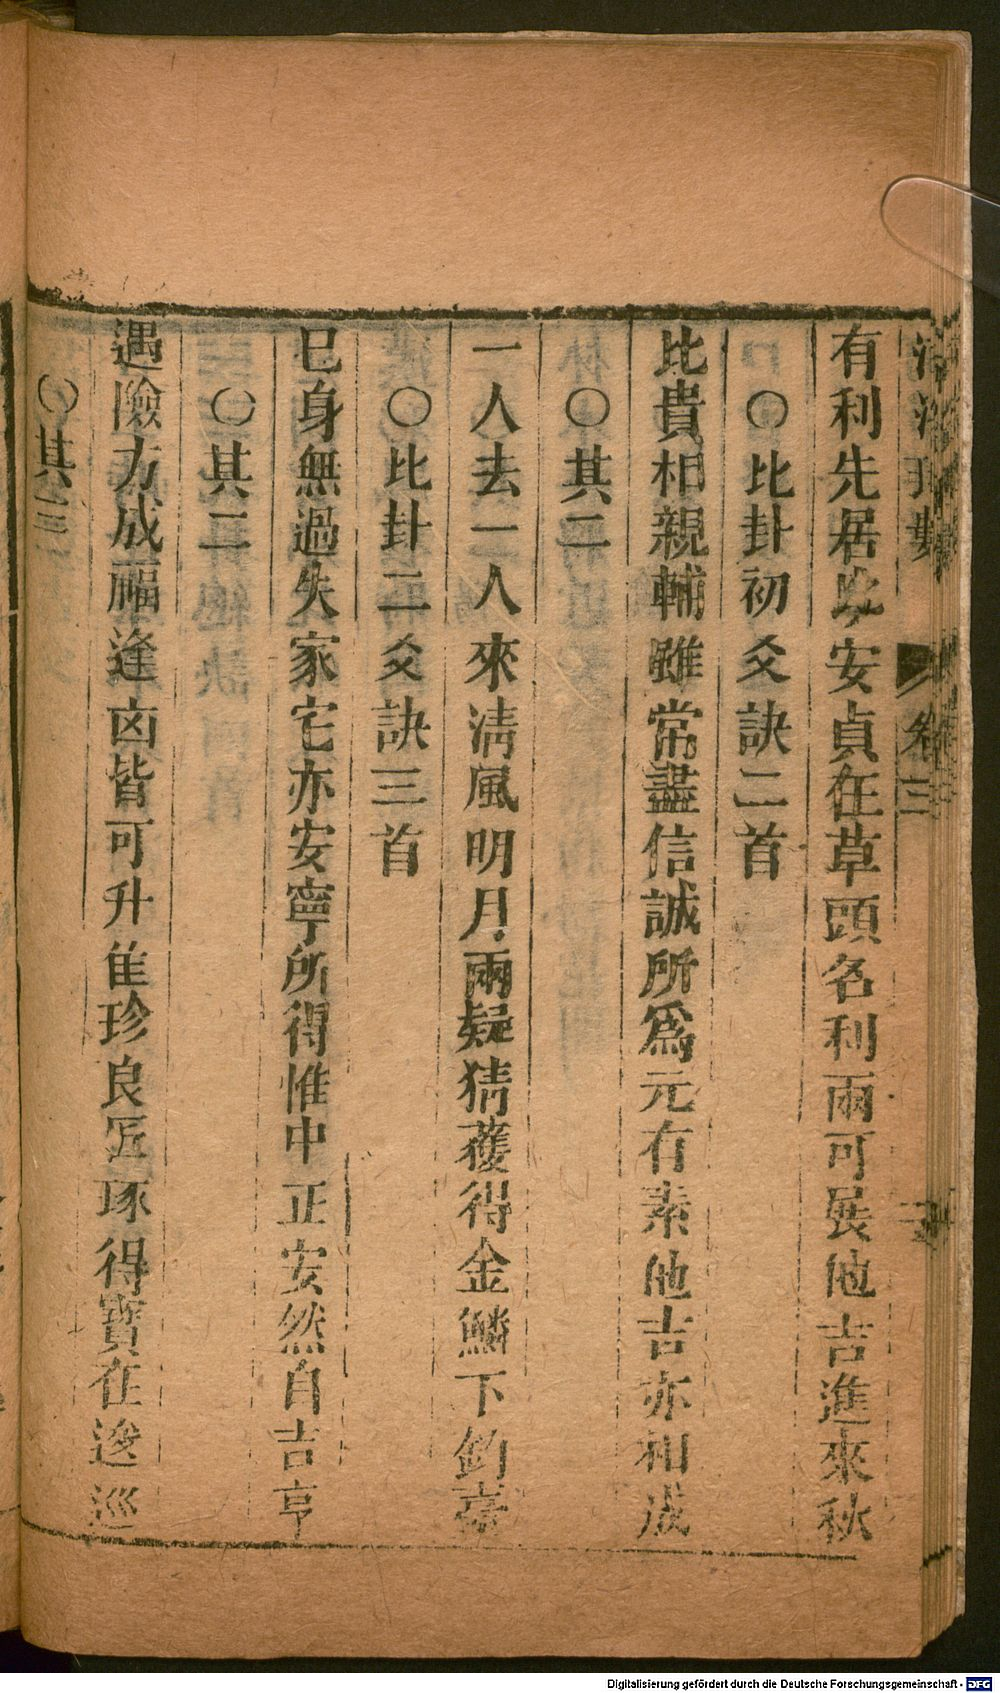 卷三
有利先居安貞在草頭名利兩可展他吉進來秋
○比卦初爻訣二首
比貴相親輔雖常盡信誠所為元有素他吉亦相成
○其二
一人去一人來淸風明月兩疑猜獲得金鱗下釣臺
○比卦二爻訣三首
巳身無過失家宅亦安寧所得惟中正安然自吉亨
○其二
遇險方成福逢凶皆可升隹珍良匠琢得寳在逡巡
○其三
Digitalisierung gefördert durch die Deutsche Forschungsgemeinschaft - DFG